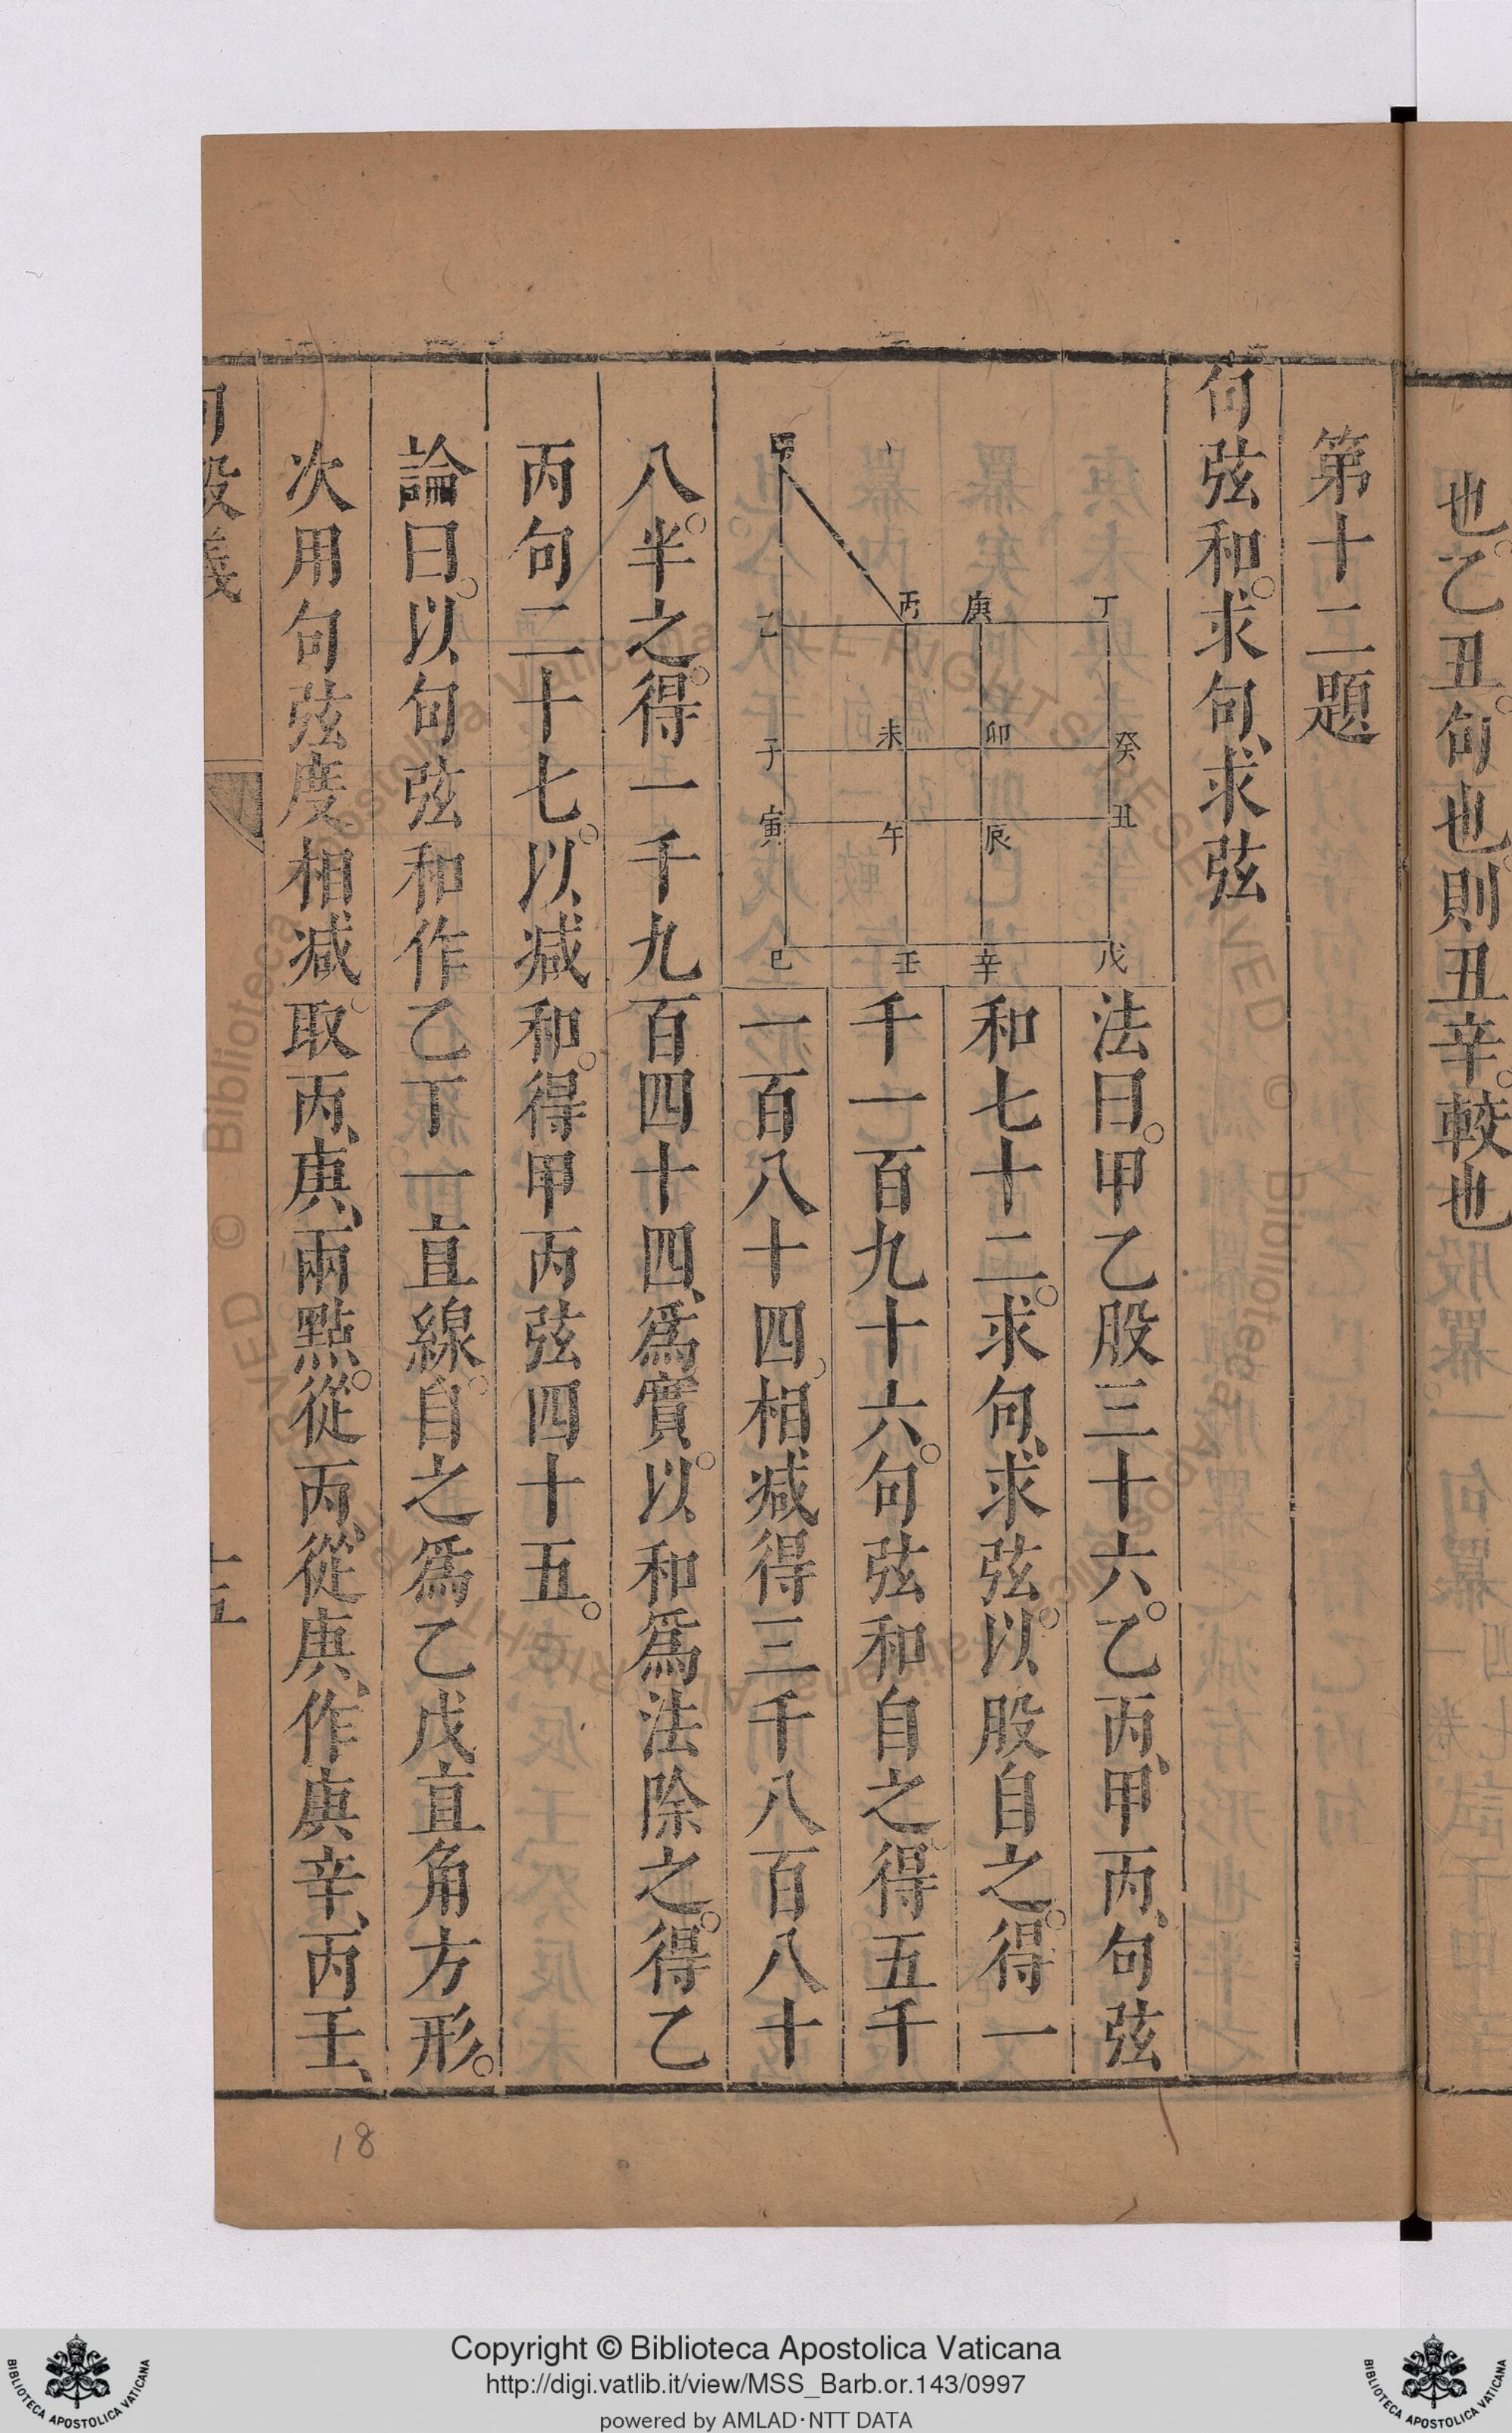 也。乙丑。句也。則丑辛。較也
第十二題
句弦和。求句、求弦
法曰。甲乙股三十六。乙丙、甲丙、句弦
和七十二。求句、求弦。以股自之。得一
千一百九十六。句弦和自之。得五千
一百八十四、相減得三千八百八十
八。半之。得一千九百四十四、爲實。以和爲法除之。得乙
丙句二十七。以減和。得甲丙弦四十五。
論曰。以句弦和作乙丁一直線。自之爲乙戊直角方形。
次用句弦度相減。取丙、庚、兩點。從丙、從庚、作庚辛、丙壬、
甲
乙 丙 庚 丁
子 未 卯 癸
寅 午 辰 丑
巳 壬 辛 戊
句股義
十五
18
Copyright © Biblioteca Apostolica Vaticana
http://digi.vatlib.it/view/MSS_Barb.or.143/0997
powered by AMLAD·NTT DATA
BIBLIOTECA APOSTOLICA VATICANA
BIBLIOTECA APOSTOLICA VATICANA